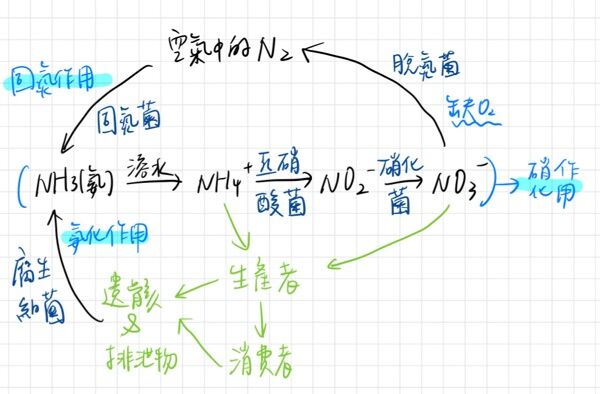 空氣中的N₂
固氮作用
固氮菌
脫氮菌
缺O₂
(NH3(氨) 溶水 NH₄⁺ 亞硝酸菌 NO₂⁻ 硝化菌 NO₃⁻) → 硝化作用
氨化作用
腐生細菌
生產者
遺骸
&
排泄物
消費者